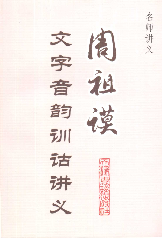 名师讲义
周祖谟
文字音韵训诂讲义